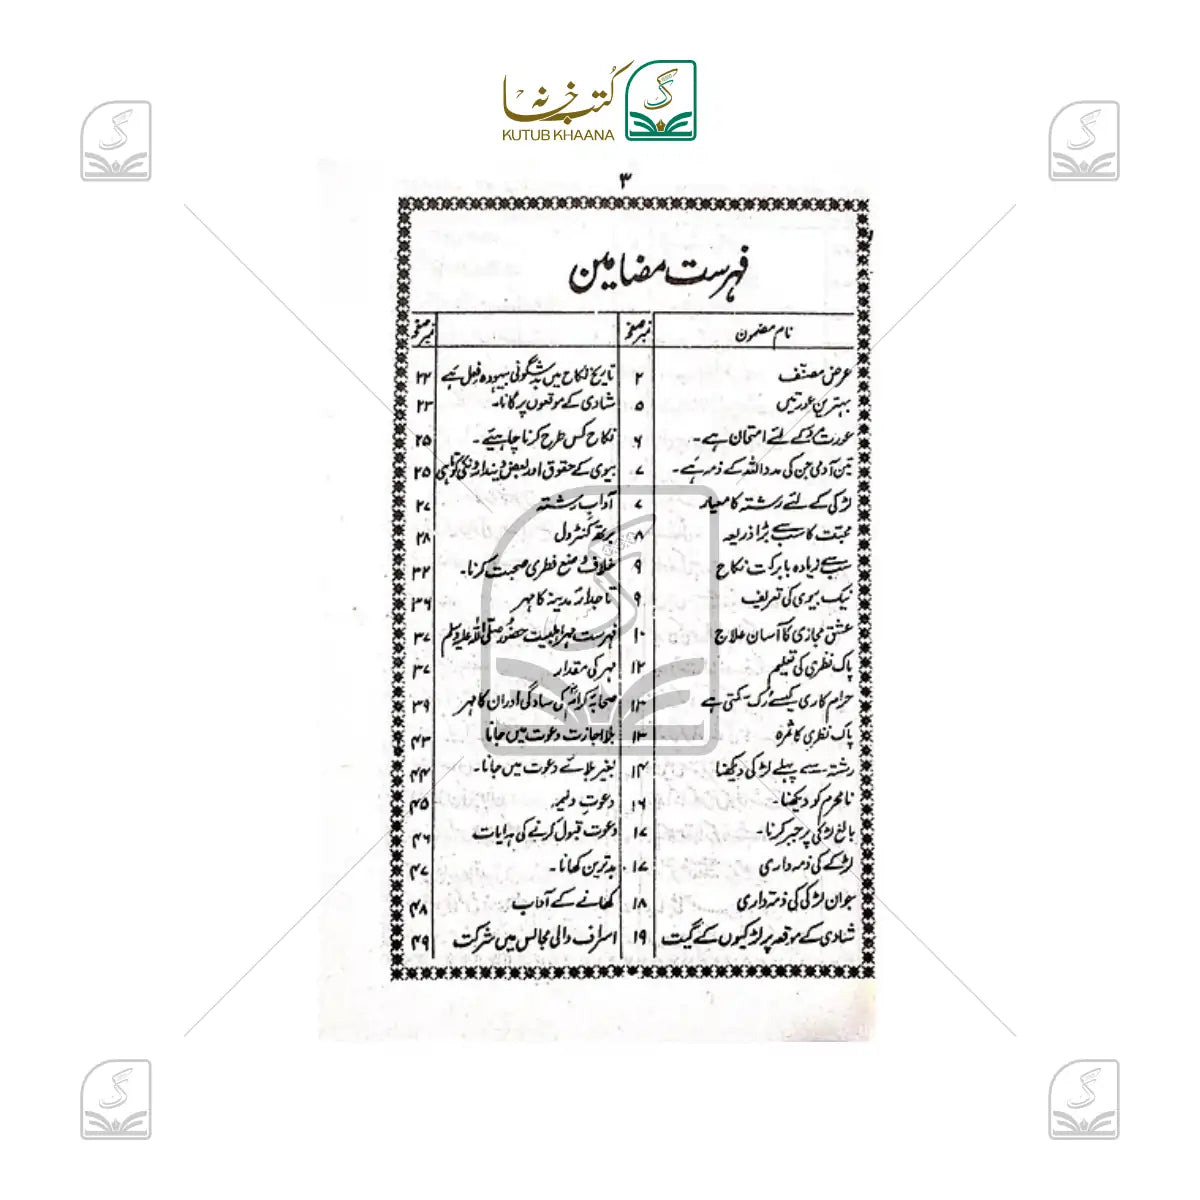 کتب خانہ
KUTUB KHAANA
۳
فہرست مضامین
نام مضمون نمبر صفحہ
عرض مصنّف ۲
بہترین عورتیں ۵
عورت مرد کے لئے امتحان ہے۔ ۶
تین آدمی جن کی مدد اللہ کے ذمہ ہے۔ ۷
لڑکی کے لئے رشتہ کا معیار ۷
محبّت کا سب سے بڑا ذریعہ ۸
سب سے زیادہ بابرکت نکاح ۹
نیک بیوی کی تعریف ۹
عشق مجازی کا آسان علاج ۱۰
پاک نظری کی تعلیم ۱۲
حرام کاری کیسے رُک سکتی ہے ۱۳
پاک نظری کا ثمرہ ۱۳
رشتہ سے پہلے لڑکی دیکھنا ۱۴
نامحرم کو دیکھنا۔ ۱۶
بالغ لڑکی پر جبر کرنا۔ ۱۷
لڑکے کی ذمہ داری ۱۷
جوان لڑکی کی ذمّہ داری ۱۸
شادی کے موقعہ پر لڑکیوں کے گیت ۱۹
نمبر صفحہ
تاریخ نکاح میں بدشگونی بیہودہ فعل ہے ۲۲
شادی کے موقعوں پر گانا۔ ۲۳
نکاح کس طرح کرنا چاہیئے۔ ۲۵
بیوی کے حقوق اور بعض دینداروں کی کوتاہی ۲۵
آدابِ رشتہ ۲۷
برتھ کنٹرول ۲۸
خلاف وضع فطری صحبت کرنا۔ ۳۲
تاجدارِ مدینہ کا مہر ۳۶
فہرست مہر اہلبیت حضور صلی اللہ علیہ وسلم ۳۷
مہر کی مقدار ۳۷
صحابۂ کرامؓ کی سادگی اور ان کا مہر ۳۹
بلا اجازت دعوت میں جانا ۴۳
بغیر بلائے دعوت میں جانا۔ ۴۴
دعوتِ ولیمہ ۴۵
دعوت قبول کرنے کی ہدایات ۴۶
بدترین کھانا۔ ۴۷
کھانے کے آداب ۴۸
اسراف والی مجالس میں شرکت ۴۹